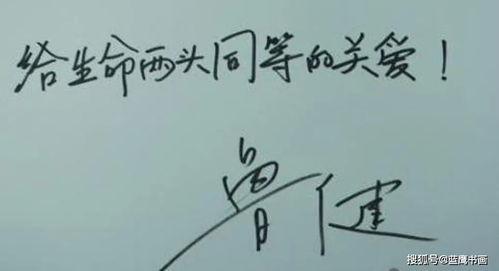 给生命两头同等的关爱！
鲁健
搜狐号@蓝鹰书画